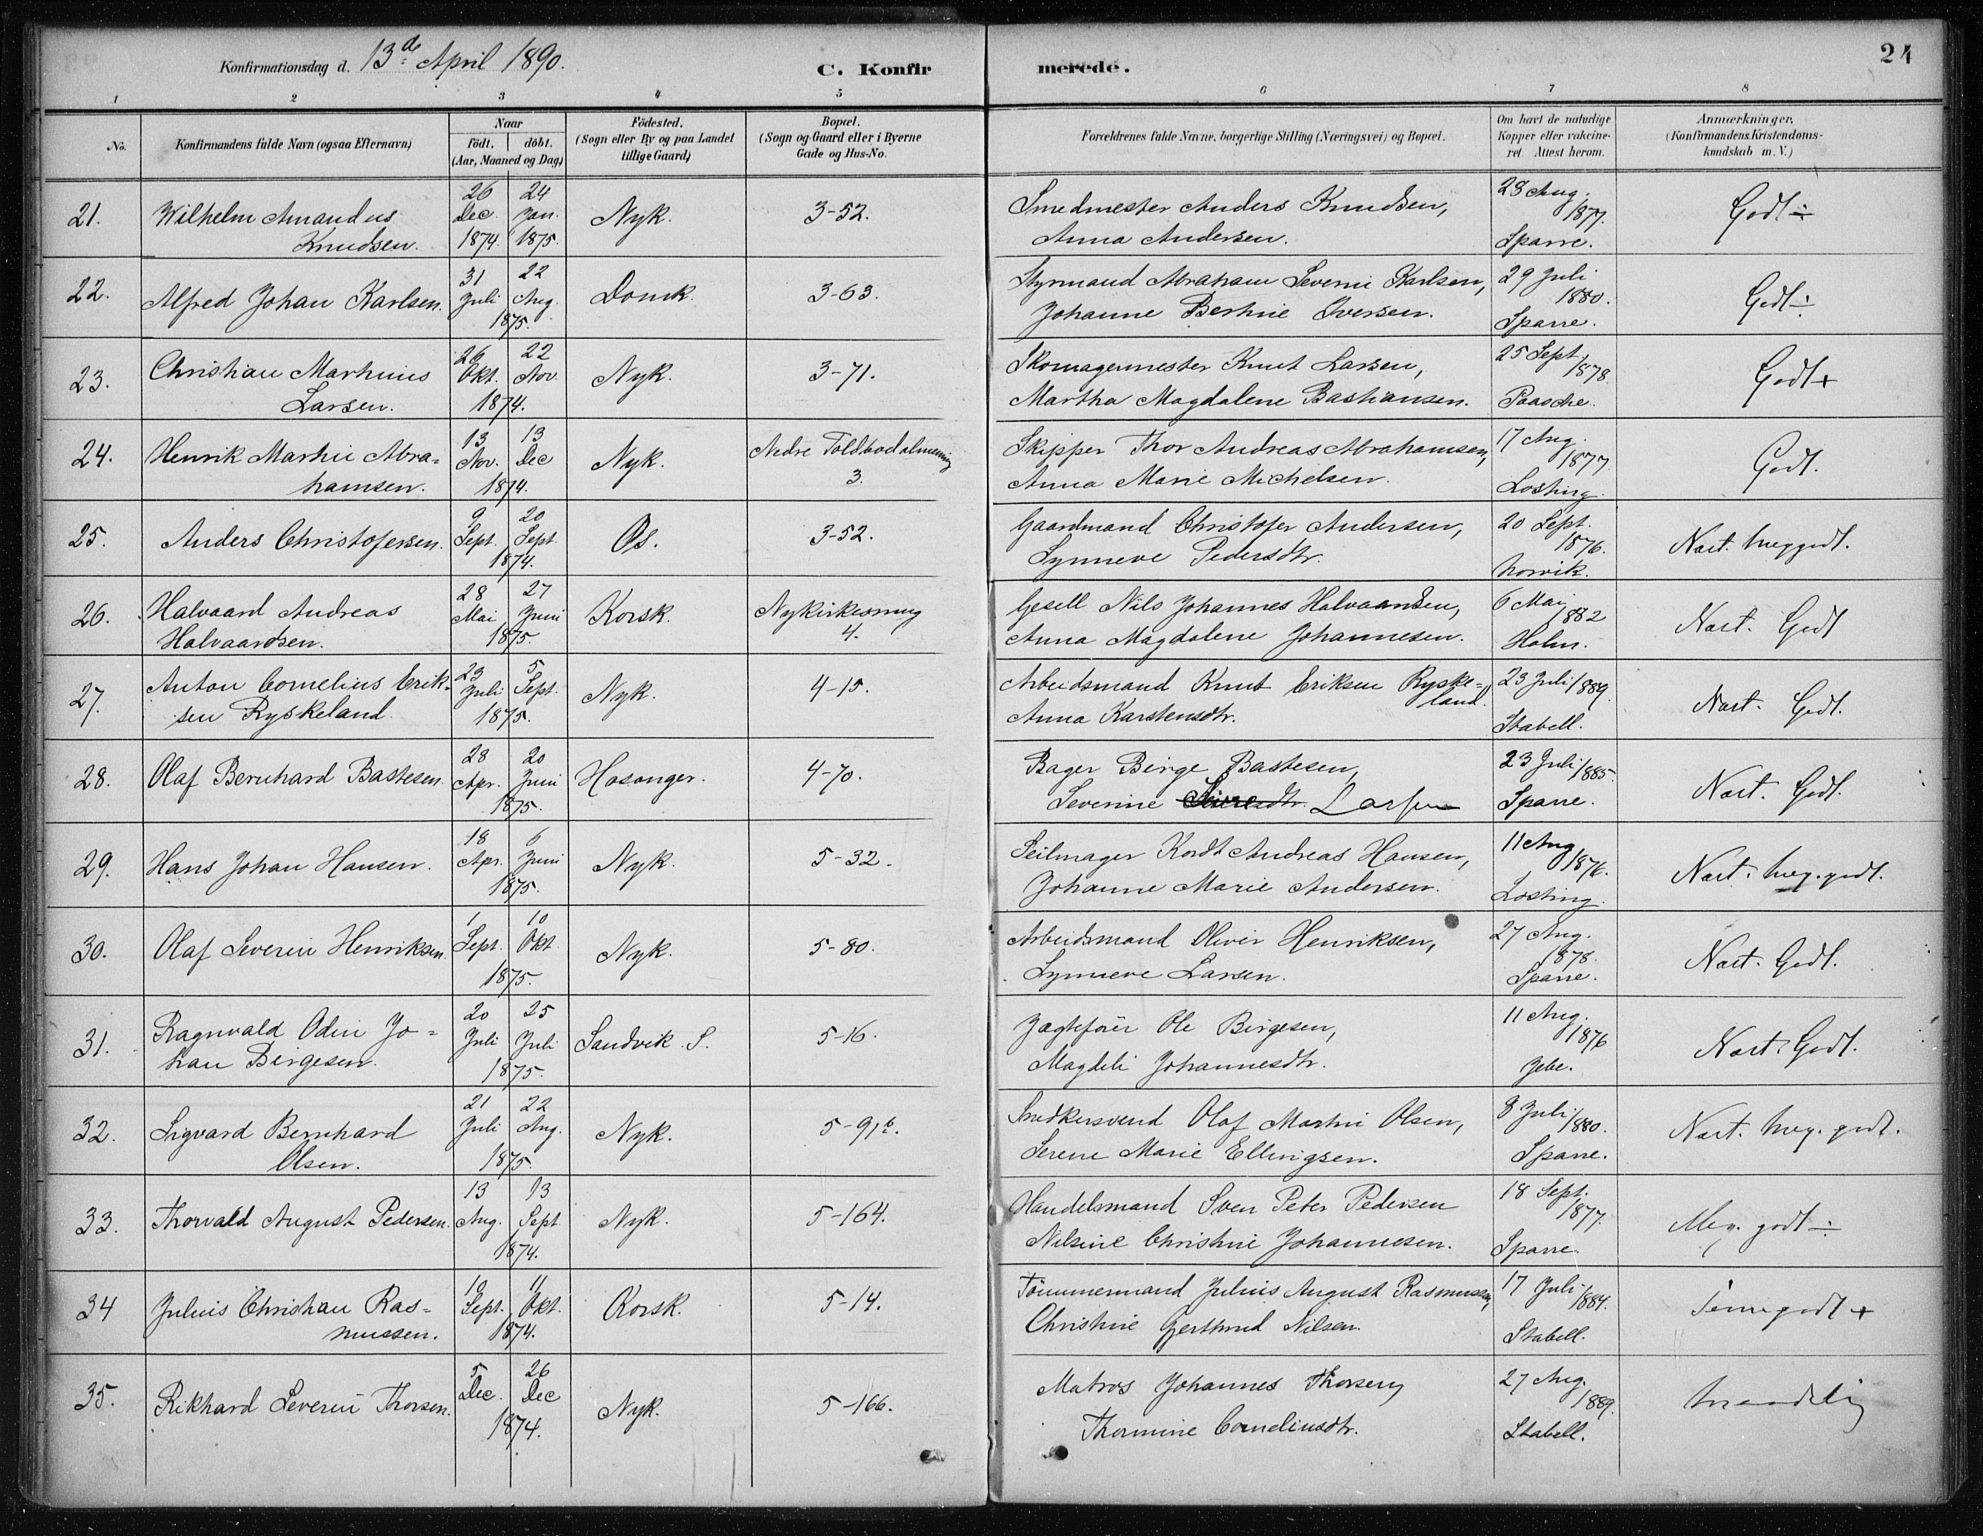 Konfirmationsdag d. 13de April 1890.
C. Konfirmerede.
24
1 2 3 4 5 6 7 8
No. Konfirmandens fulde Navn (ogsaa Efternavn) Naar Födt. döbt. (Aar, Maaned og Dag) Födested. (Sogn eller By og paa Landet tillige Gaard) Bopæl. (Sogn og Gaard eller i Byerne Gade og Hus-No. Forældrenes fulde Navne, borgerlige Stilling (Næringsvei) og Bopæl. Om havt de naturlige Kopper eller vakcineret. Attest herom. Anmærkninger. (Konfirmandens Kristendomskundskab m. V.)
21. Wilhelm Amandus Knudsen. 26 Dec. 1874 24 Jan. 1875. Nyk. 3-52. Smedmester Anders Knudsen, Anna Andersen. 28 Aug. 1877. Sparre. Godt ÷
22. Alfred Johan Karlsen. 31 Juli 22 Aug. 1875. Domk. 3-63. Styrmand Abraham Severin Karlsen, Johanne Berthine Iversen. 29 Juli 1880. Sparre. Godt ÷
23. Christian Marthinus Larsen. 26 Okt. 22 Nov. 1874. Nyk. 3-71. Skomagermester Knut Larsen, Martha Magdalene Bastiansen. 25 Sept. 1878. Paasche. Godt +
24. Henrik Martin Abrahamsen. 13 Nov. 13 Dec 1874. Nyk. Nedre Toldbodalmenning 3. Skipper Thor Andreas Abrahamsen, Anna Marie Michelsen. 17 Aug. 1877. Losting. Godt.
25. Anders Christofersen. 9 Sept. 20 Sept. 1874. Os. 3-52. Gaardmand Christofer Andersen, Synneve Pedersdtr. 20 Sept. 1876. Norvik. Næst. meg godt.
26. Halvaard Andreas Halvaardsen. 28 Mai 27 Juni 1875. Korsk. Nykirkesmug 4. Gesell Nils Johannes Halvaardsen, Anna Magdalene Johannesen. 6 Mai 1882 Holm. Næst. Godt
27. Anton Cornelius Eriksen Ryskeland. 23 Juli 5 Sept. 1875. Nyk. 4-15. Arbeidsmand Knut Eriksen Ryskeland. Anna Karstensdtr. 23 Juli 1889. Stabell. Næst. Godt.
28. Olaf Bernhard Bastesen. 28 Apr. 20 Juni 1875. Hosanger. 4-70. Bager Birge Bastesen, Severine Larsen 23 Juli 1885. Sparre. Næst. Godt.
29. Hans Johan Hansen. 18 Apr. 6 Juni 1875. Nyk. 5-32. Seilmager Kordt Andreas Hansen, Johanne Marie Andersen. 11 Aug 1876. Losting. Næst. meg. godt.
30. Olaf Severin Henriksen. 1 Sept. 10 Okt. 1875. Nyk. 5-80. Arbeidsmand Oliver Henriksen, Synneve Larsen. 27 Aug. 1878. Sparre. Næst. Godt.
31. Ragnvald Odin Johan Birgesen. 20 Juli 25 Juli 1875. Sandvik. S. 5-16. Jagtefører Ole Birgesen, Magdeli Johannesdtr. 11 Aug. 1876 Jebe. Næst. Godt.
32. Sigvard Bernhard Olsen. 21 Juli 22 Aug. 1875. Nyk. 5-91b. Snedkersvend Olaf Martin Olsen, Serene Marie Ellingsen. 8 Juli 1880. Sparre. Næst. meg. godt.
33. Thorvald August Pedersen. 13 Aug. 13 Sept 1874. Nyk. 5-164. Handelsmand Sven Peter Pedersen Nilsine Christine Johannesen. 18 Sept. 1877. Sparre. Meg. godt ÷
34 Julius Christian Rasmussen. 10 Sept. 11 Okt. 1874. Korsk. 5-14. Tömmermand Julius August Rasmussen, Christine Gerthrud Nilsen. 17 Juli 1884. Stabell. Temgodt +
35. Rikhard Severin Thorsen. 5 Dec. 26 Dec 1874. Nyk. 5-166. Matros Johannes Thorsen, Thormine Corneliusdtr. 27 Aug. 1889. Stabell.